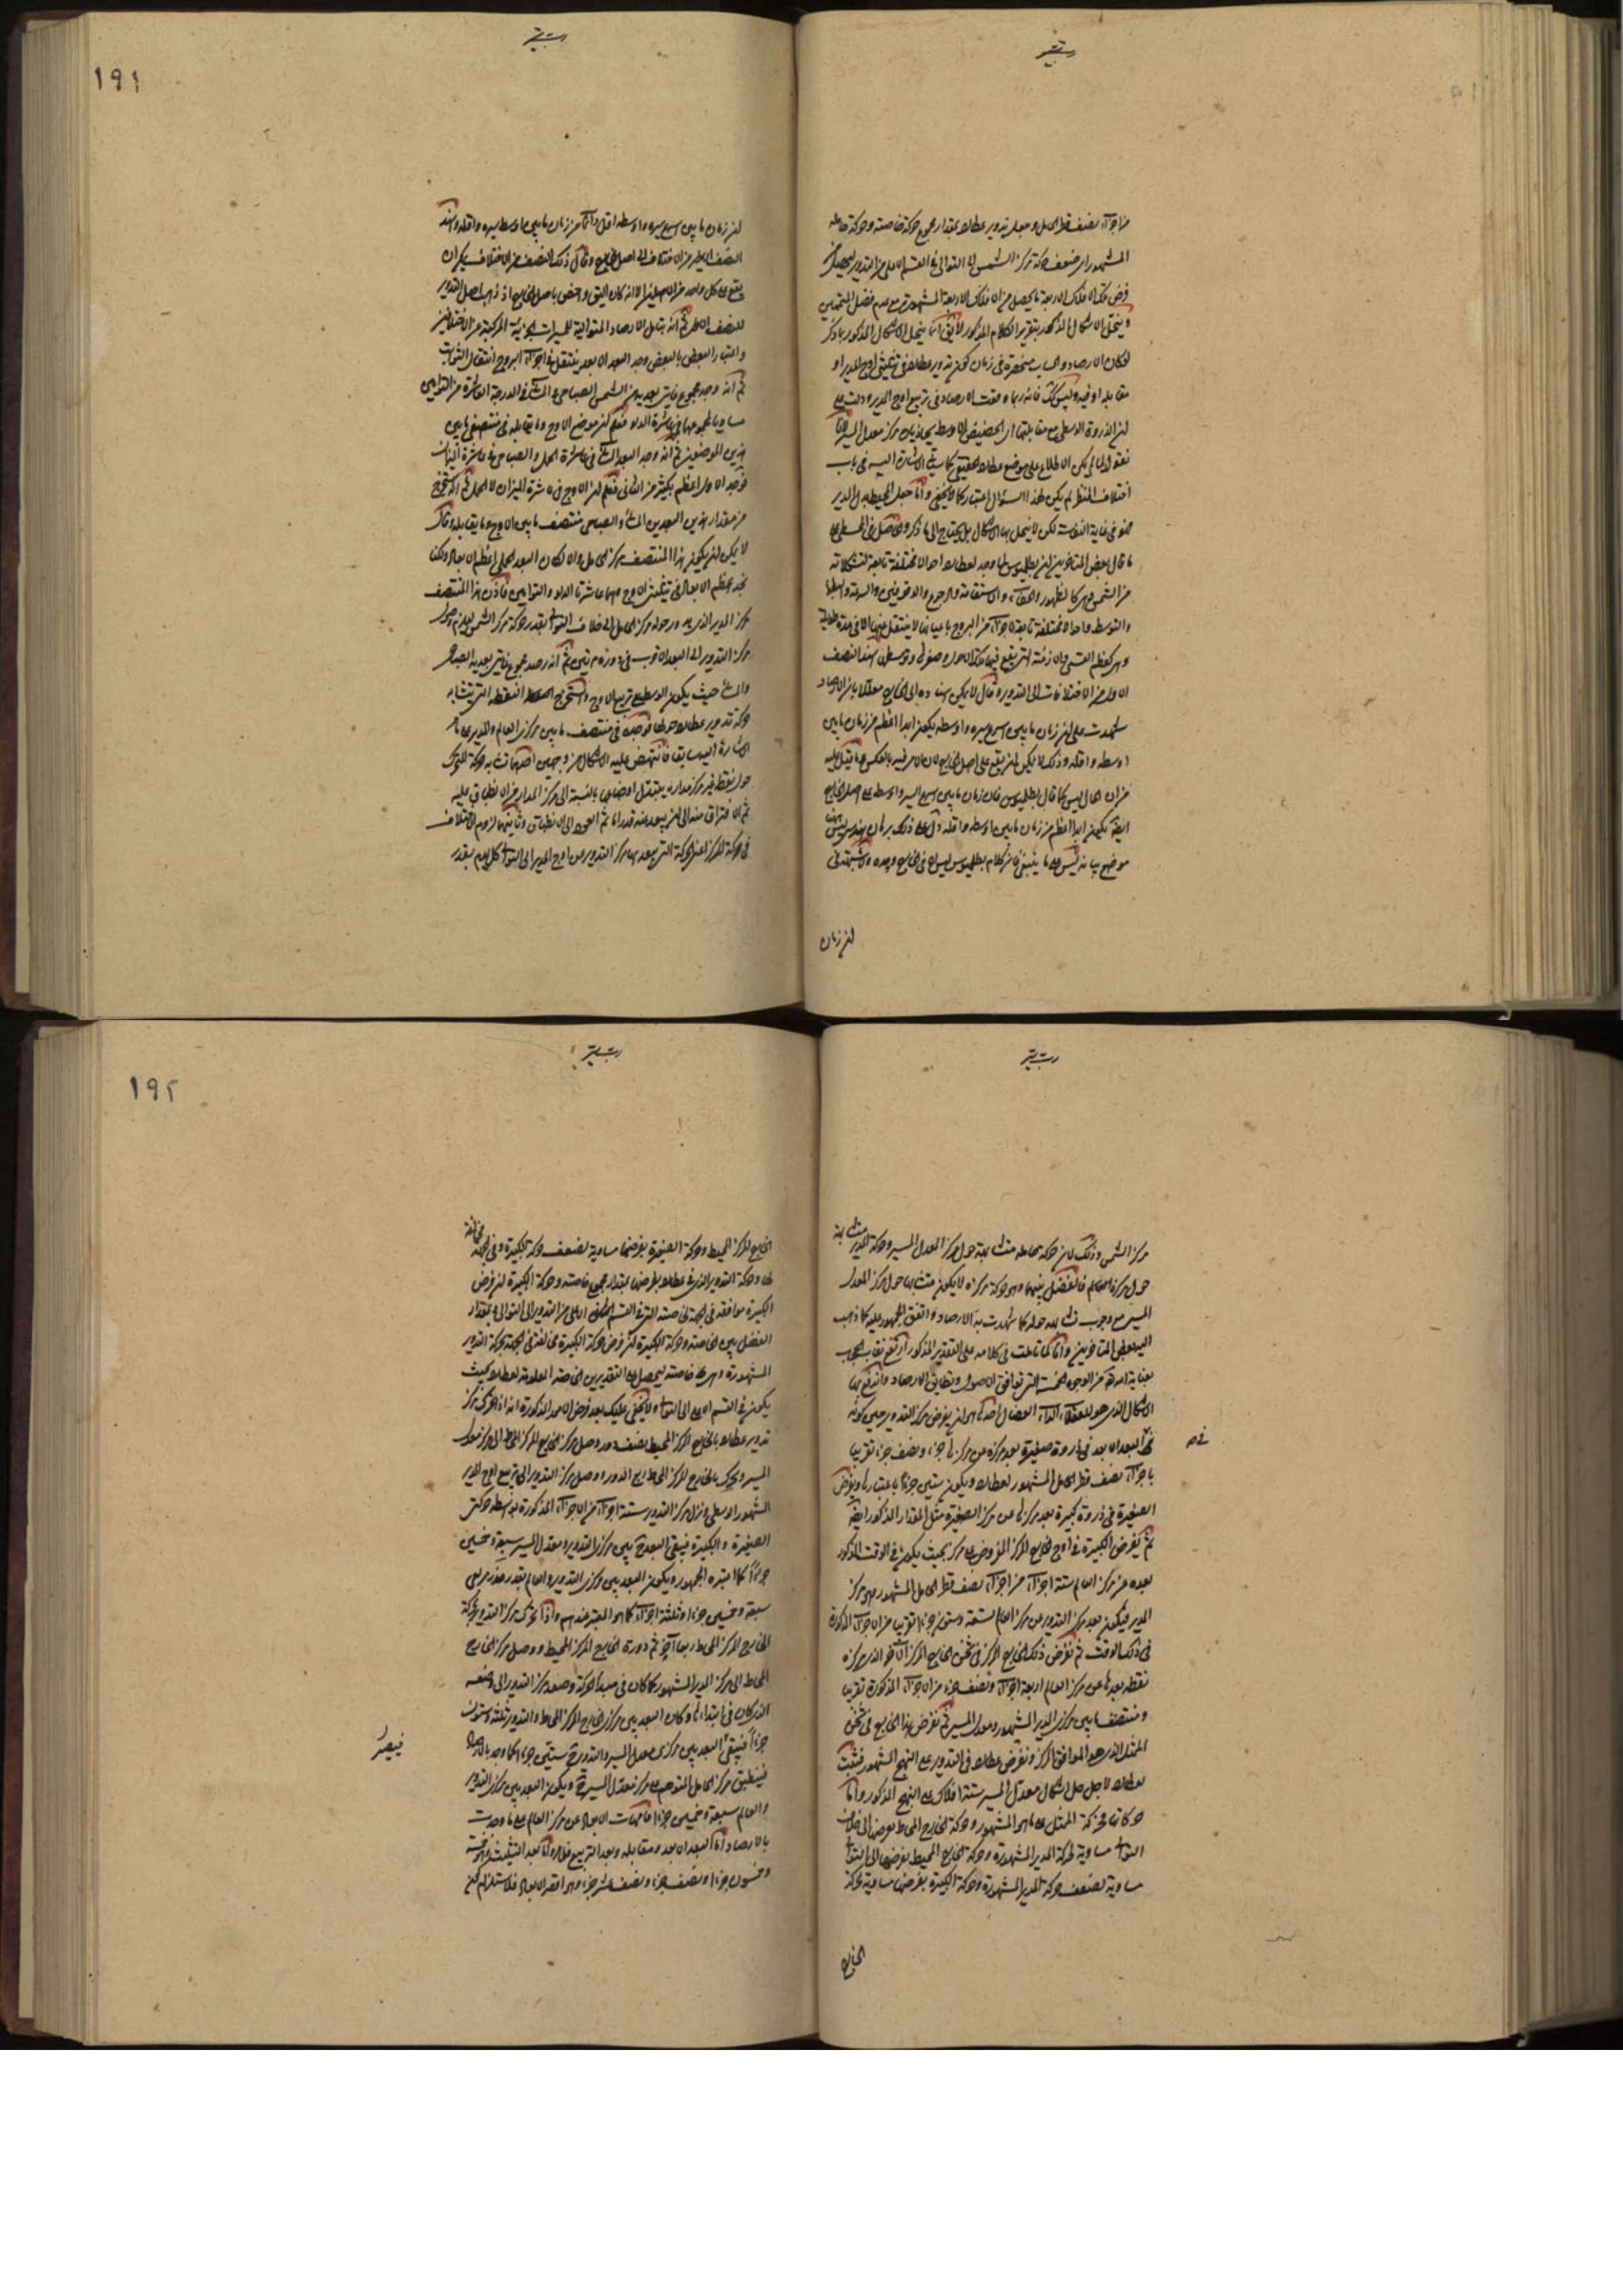 من اجزاء نصف قطر الحامل وجعل تدوير عطارد بمقدار مجموع حركة خاصته وحركة حامله
المشهور اى ضعف حركة مركز الشمس الى التوالى فى القسم الاعلى من التدوير ليحصل من
فرض تلك الافلاك الاربعة ما يحصل من الافلاك الاربعة المشهورة مع عدم فضل المتممين
وينحل الاشكال المذكور بتقرير الكلام المذكور لا يقال انما ينحل الاشكال المذكور بما ذكر
لو كان الارصاد والحساب منحصرة فى زمان كون تدوير عطارد فى تثليثى اوج المدير او
مقابله او فيه وليس كذلك فانه ربما وقعت الارصاد فى تربيع اوج المدير ودلت على
ان الذروة الوسطى مع مقابلتها اى الحضيض الاوسط يحاذيان مركز معدل المسير لانا
نقول لما لم يكن الاطلاع على موضع عطارد الحقيقى كما سبقت الاشارة اليه فى باب
اختلاف المنظر لم يكن لهذا السؤال اعتبار كما لا يخفى واما جعل المحيط بدل المدير
فهو فى غاية النفاسة لكن لا ينحل بها الاشكال بل يحتاج الى ما ذكر
ما قال بعض المتاخرين ان بطلميوس لما وجد لعطارد احوالا مختلفة تابعة لتشكلاته
من الشمس هى كالظهور والخفاء والاستقامة والرجوع والوقوفين والسرعة والبطء
والتوسط واحوالا مختلفة تابعة لاجزاء من البروج باعيانها لا ينتقل عنها الا فى مدة طويلة
وهى كعظم القسى والازمنة التى يقع فيها هذه الاحوال وصغرها وتوسطهما اسند النصف
الاول من الاختلافات الى التدوير وقال لا يمكن اسناده الى الخارج معللا بان الارصاد
شهدت على ان زمان ما بين اسرع سيره واوسطه يكون ابدا اعظم من زمان ما بين
اوسطه واقله وذلك لا يمكن ان يقع على اصل الخارج لان الامر فيه بالعكس
من ان الحال ليس كما قال بطلميوس فان زمان ما بين اسرع السير واوسطه على اصل الخارج
ايضا يكون ابدا اعظم من زمان ما بين اوسطه واقله دل على ذلك برهان هندسى ليس هنا
موضع بيانه ليس على ما ينبغى فان كلام بطلميوس ليس الا فى الخارج وحده
ان زمان
١٩١
ان زمان ما بين اسرع سيره واوسطه اقل دائما من زمان ما بين اوسط سيره واقله واسند
النصف الاخر من الاختلاف الى اصل الخارج وقال ذلك النصف من الاختلاف يمكن ان
يقع على كل واحد من الاصلين الا انه كان اليق واخص باصل الخارج اذ ذهب اصل التدوير
للنصف الاخر ثم انه بتامل الارصاد المتوالية للمسيرات الجزئية المركبة من الاختلافين
واعتبار البعض بالبعض وجد البعد الابعد ينتقل فى اجزاء البروج انتقال الثوابت
ثم انه وجد مجموع غايتى بعديه من الشمس الصباحى والمسائى فى الدرجة العاشرة من التوامين
مساويا لمجموعهما فى عاشرة الدلو فعلم ان موضع الاوج وما يقابله فى منتصفى ما بين
هذين الموضعين ثم انه وجد البعد المسائى فى عاشرة الحمل والصباحى فى عاشرة الميزان
فوجد الاول اعظم بكثير من الثانى فعلم ان الاوج فى عاشرة الميزان لا الحمل ثم انه استخرج
من مقدار هذين البعدين المسائى والصباحى منتصف ما بين الاوج وما يقابله وقال
لا يمكن ان يكون هذا المنتصف مركز الحامل والا لكان البعد الحملى اعظم الابعاد ولكنا
نجد اعظم الابعاد فى تثليثى الاوج وهما عاشرتا الدلو والتوامين فاذن هذا المنتصف
مركز المدير الذى يدور حوله مركز الحامل الى خلاف التوالى بقدر حركة مركز الشمس ليلزم وصول
مركز التدوير الى البعد الاقرب فى دورة مرتين ثم انه رصد مجموع غايتى بعديه الصباحى
والمسائى حيث يكون الوسطى على تربيع الاوج واستخرج النقطة التى يتشابه
حركة تدوير عطارد حولها فوجده فى منتصف ما بين مركزى العالم والمدير على ما مر
الاشارة اليه سابقا فانتهض عليه الاشكال من وجهين احدهما تشابه حركة المتحرك
حول نقطة غير مركز مداره يتبدل اوضاعها بالنسبة الى مركز المدار من الانطباق عليه
ثم الافتراق منه الى ان يبعد عنه قدرا ما ثم العود الى الانطباق وثانيهما لزوم الاختلاف
فى حركة المركز اعنى الحركة التى يبعد بها مركز التدوير من اوج المدير الى التوالى كل يوم بقدر
مركز الشمس وذلك لان حركة حامله متشابهة حول مركز معدل المسير وحركة المدير متشابهة
حول مركز العالم فالفضل بينهما وهو حركة مركزه لا يكون متشابها حول مركز المعدل
المسير مع وجوب تشابهه حوله كما شهدت به الارصاد واتفق الجمهور عليه كما ذهب
اليه بعض المتاخرين وانا لما تاملت فى كلامه على التقدير المذكور ارتفع نقاب الحجاب
بعناية الله تعالى من الوجوه الخمسة التى توافق الاصول وتطابق الارصاد واندفع بها
الاشكال الذى هو للعقلاء الداء العضال احدها هو ان يفرض مركز التدوير حين كونه
فى البعد الابعد فى ذروة صغيرة بعد مركزه من مركزها جزء ونصف جزء تقريبا
باجزاء نصف قطر الحامل المشهور لعطارد ويكون ستين جزءا باعتبارها ويفرض
الصغيرة فى ذروة كبيرة بعد مركزها من مركز الصغيرة مثل المقدار المذكور ايضا
ثم يفرض الكبيرة فى اوج الخارج المركز المفروض على مركز بحيث يكون فى الوقت المذكور
بعده من مركز العالم ستة اجزاء من اجزاء نصف قطر الحامل المشهور وهو مركز
المدير فيكون بعد مركز التدوير من مركز العالم تسعة وستين جزءا تقريبا من الاجزاء المذكورة
فى ذلك الوقت ثم نفرض ذلك الخارج المركز فى ثخن الخارج المركز الآخر الذى مركزه
نقطة بعدها من مركز العالم اربعة اجزاء ونصف جزء من الاجزاء المذكورة تقريبا
ومنتصف ما بين مركزى المدير المشهور ومعدل المسير ثم نفرض هذا الخارج فى ثخن
الممثل الذى هو الموافق المركز ونفرض عطارد فى التدوير على النهج المشهور فيثبت
لعطارد لاجل حل اشكال معدل المسير ستة افلاك على النهج المذكور واما
حركاتها فحركة الممثل على ما هو المشهور وحركة الخارج المحاط نفرض الى خلاف
التوالى مساوية لحركة المدير المشهورة وحركة الخارج المحيط نفرضها الى التوالى
مساوية لضعف حركة المدير المشهورة وحركة الكبيرة نفرضها مساوية لحركة
الخارج
١٩٢
الخارج المركز المحيط وحركة الصغيرة نفرضها مساوية لضعف حركة الكبيرة وفى الجهة مخالفة
لها وحركة التدوير الذى فى عطارد نفرضها بمقدار مجموع خاصته وحركة الكبيرة ان فرض
الكبيرة موافقة فى الجهة لخاصته التى فى القسم الاعلى من التدوير الى التوالى وبمقدار
الفضل بين الخاصة وحركة الكبيرة ان فرض حركة الكبيرة مخالفة فى الجهة لحركة التدوير
المشهورة وهى خاصته ليحصل على التقديرين الخاصة المعلومة لعطارد بحيث
يكون فى القسم الاعلى الى التوالى ولا يخفى عليك بعد فرض الامور المذكورة انه اذا تحرك مركز
تدوير عطارد بالخارج المركز المحيط نصف دور وصل مركز الخارج المركز المحاط الى مركز معدل
المسير وتحرك بالخارج المركز المحاط ربع الدور ووصل مركز التدوير الى تربيع اوج المدير
المشهور الاوسطى ونزل مركز التدوير ستة اجزاء من الاجزاء المذكورة بواسطة حركتى
الصغيرة والكبيرة فيبقى البعد بين مركزى التدوير ومعدل المسير سبعة وخمسين
جزءا كما اعتبره الجمهور ويكون البعد بين مركزى التدوير والعالم بقدر جذر مربعى
سبعة وخمسين جزءا وثلثة اجزاء كما هو المعتبر عندهم واذا تحرك مركز التدوير بحركة
الخارج المركز المحاط ربعا آخر تم دورة الخارج المركز المحيط ووصل مركز الخارج
المحاط الى مركز المدير المشهور كما كان فى مبدأ الحركة وصعد مركز التدوير الى وضعه
الذى كان فى ابتدائها وكان البعد بين مركز الخارج المركز المحاط والتدوير ثلثة وستون
جزءا فيبقى البعد بين مركزى معدل المسير والتدوير ستين جزءا كما وجد بالارصاد
فينطبق مركز الحامل المتوهم على مركز معدل المسير ويكون البعد بين مركز التدوير
والعالم سبعة وخمسين جزءا فامهات الابعاد عن مركز العالم على ما وجدت
بالارصاد اما البعد الابعد ومقابله وبعد التربيع فظاهر واما بعد التثليث وهو خمسة
وخمسون جزءا ونصف جزء ونصف عشر جزء وهو اقصر الابعاد فلاستلزام كون